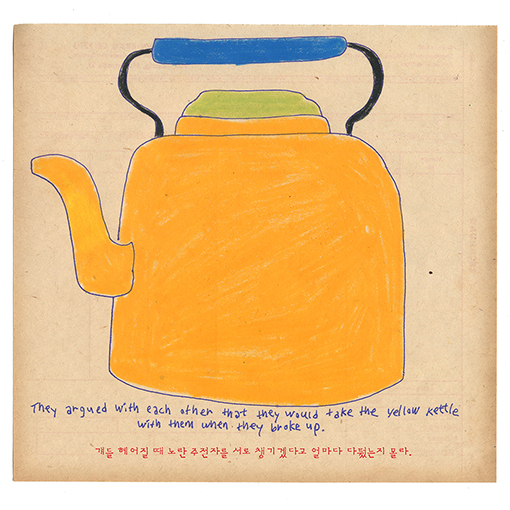 They argued with each other that they would take the yellow kettle
with them when they broke up.
걔들 헤어질 때 노란 주전자를 서로 챙기겠다고 얼마나 다퉜는지 몰라.